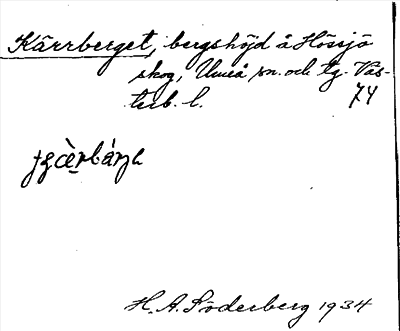 Kärrberget, bergshöjd å Hössjö
skog, Umeå sn. och tg. Väs-
terb. l. 74
H. A. Söderberg 1934